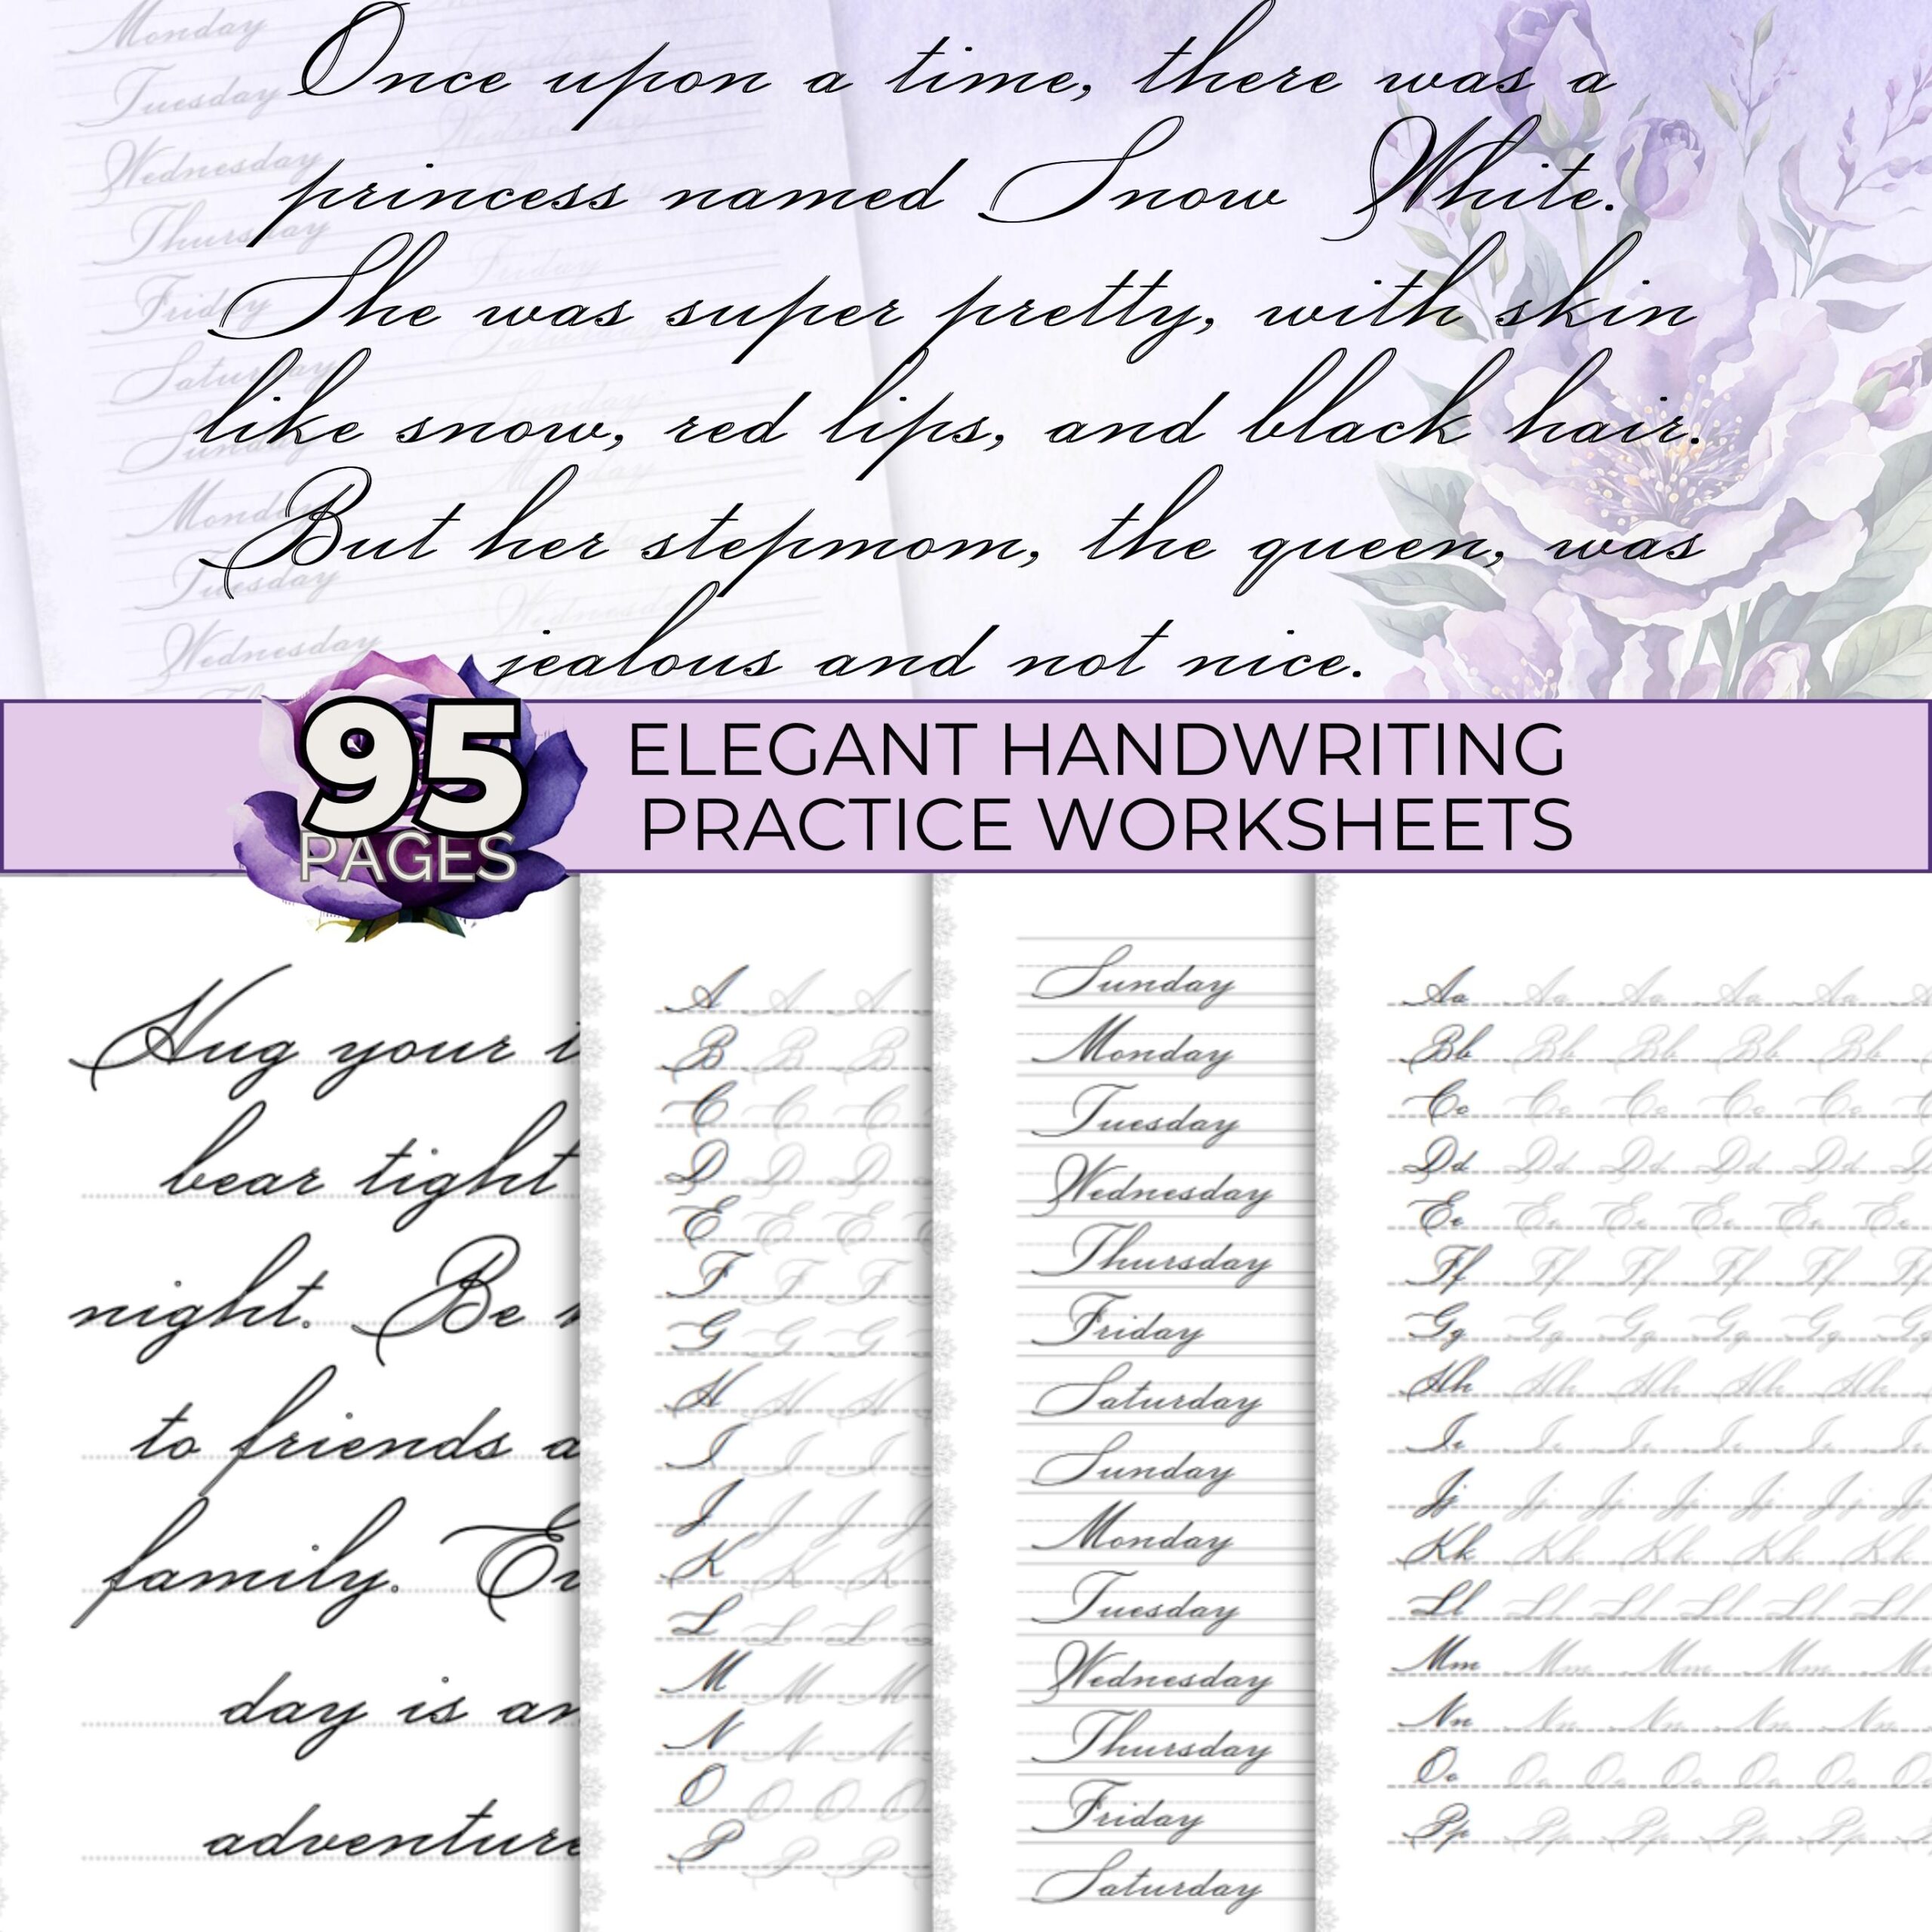 Once upon a time, there was a
princess named Snow White.
She was super pretty, with skin
like snow, red lips, and black hair.
But her stepmom, the queen, was
jealous and not nice.
Monday
Tuesday
Wednesday
Thursday
Friday
Saturday
Sunday
Monday
Tuesday
Wednesday
95
PAGES
ELEGANT HANDWRITING
PRACTICE WORKSHEETS
Hug your
bear tight
night. Be
to friends
family.
day is
adventure
A A A
B B B
C C C
D D D
E E E
F F F
G G G
H H H
I I I
J J J
K K K
L L L
M M M
N N N
O O O
P P P
Sunday
Monday
Tuesday
Wednesday
Thursday
Friday
Saturday
Sunday
Monday
Tuesday
Wednesday
Thursday
Friday
Saturday
Aa Aa Aa Aa Aa
Bb Bb Bb Bb Bb
Cc Cc Cc Cc Cc
Dd Dd Dd Dd Dd
Ee Ee Ee Ee Ee Ee
Ff Ff Ff Ff Ff
Gg Gg Gg Gg Gg
Hh Hh Hh Hh Hh
Ii Ii Ii Ii Ii
Jj Jj Jj Jj Jj Jj
Kk Kk Kk Kk Kk
Ll Ll Ll Ll Ll Ll
Mm Mm Mm Mm Mm
Nn Nn Nn Nn Nn
Oo Oo Oo Oo Oo Oo
Pp Pp Pp Pp Pp